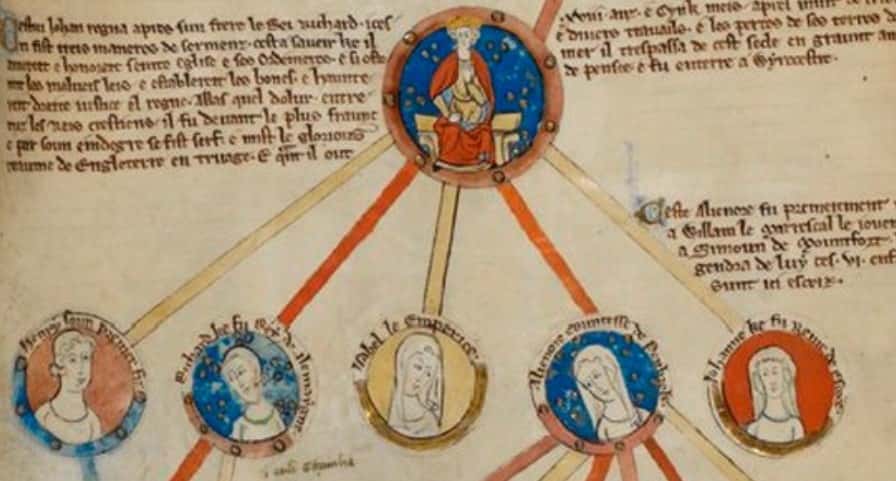 Cestui Iohan regna apres sun frere le Rei Richard. ices
en fist treis maneres de serment. cest a saveir ke il
amereit e honoreit seinte eglise e ses Ordeinerez. e si oste
reit les malueis leis. e establereit les bones. e haunte
reit dreite iustice el regne. Allas quel dolur. entre
tuz les reis crestiens. il fu devant le plus fraunc
e par soun en degre se fist serf. e mist le glorious
reaume de Engleterre en truage. E qant il out
.xviii. anz. e Cynk meis. apres mult de
e divers travails. e les pertes de ses terres
mer il trespassa de cest secle en graunt an
de pensee. e fu enterre a Wyrcestre.
Ceste Alienore fu premerement
a Willam le marescal le iouen
a Simoun de Mountfort
gendra de luy ces .vi. enf
sunt ici escriz.
Henry soun premer fiz
Richard ke fu Rey de Alemaigne
Isabel le Emperice.
Alienore countesse de
Iohanne ke fu Reine de escoce